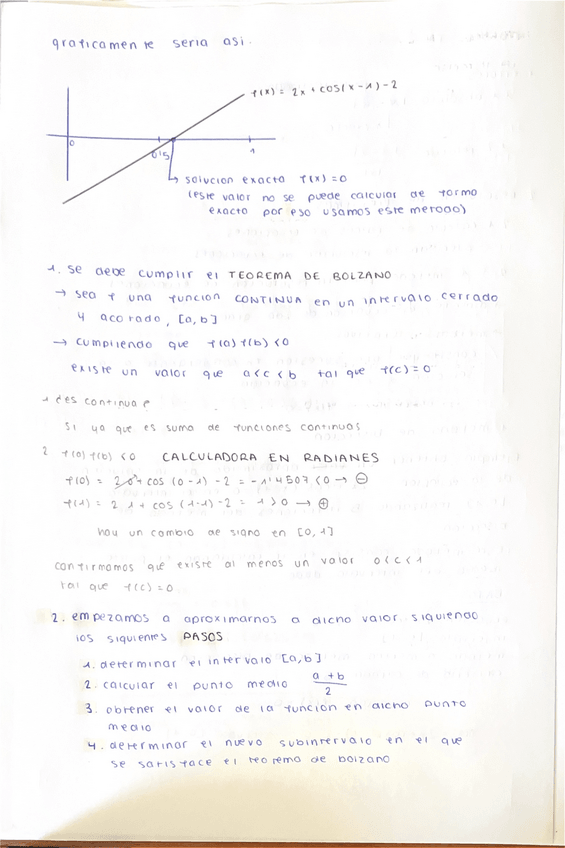 graficamente seria asi.
f(x) = 2x + cos(x-1) - 2
0
0'5
1
solucion exacta f(x)=0
(este valor no se puede calcular de forma
exacta por eso usamos este metodo)
1. se debe cumplir el TEOREMA DE BOLZANO
→ sea f una funcion CONTINUA en un intervalo cerrado
y acotado, [a,b]
→ cumpliendo que f(a) f(b) < 0
existe un valor que a < c < b tal que f(c) = 0
1 ¿es continua?
si ya que es suma de funciones continuas
2 f(a) f(b) < 0 CALCULADORA EN RADIANES
f(0) = 2·0 + cos (0-1) - 2 = -1'4507 < 0 → ⊖
f(1) = 2·1 + cos (1-1) - 2 = 1 > 0 → ⊕
hay un cambio de signo en [0,1]
confirmamos que existe al menos un valor 0 < c < 1
tal que f(c) = 0
2. empezamos a aproximarnos a dicho valor siguiendo
los siguientes PASOS
1. determinar el intervalo [a,b]
2. calcular el punto medio a+b/2
3. obtener el valor de la funcion en dicho punto
medio
4. determinar el nuevo subintervalo en el que
se satisface el teorema de bolzano